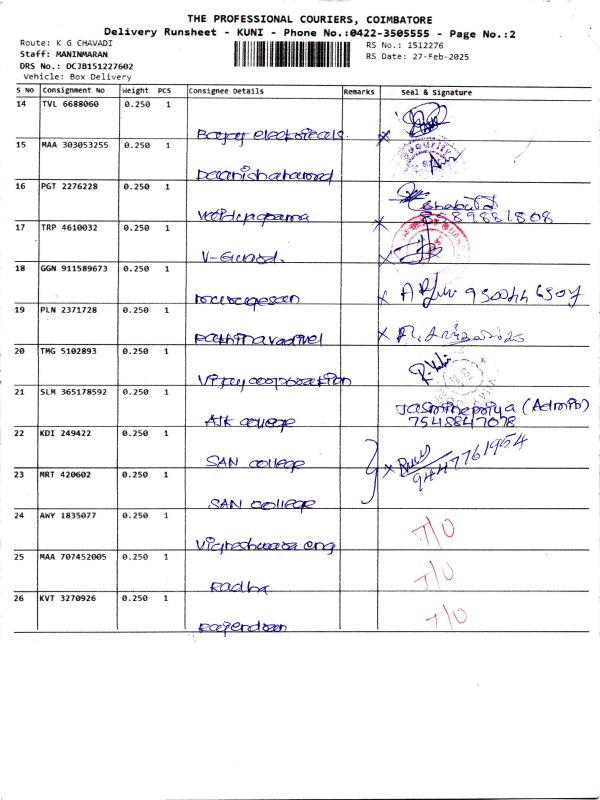 THE PROFESSIONAL COURIERS, COIMBATORE
Delivery Runsheet - KUNI - Phone No.:0422-3505555 - Page No.:2
Route: K G CHAVADI
RS No.: 1512276
Staff: MANINMARAN
RS Date: 27-Feb-2025
DRS No.: DCJB151227602
Vehicle: Box Delivery
S NO Consignment No Weight PCS Consignee Details Remarks Seal & Signature
14 TVL 6688060 0.250 1
Bajaj electricals.
15 MAA 303053255 0.250 1
Security
16 PGT 2276228 0.250 1
8589881808
17 TRP 4610032 0.250 1
V-Guard.
18 GGN 911589673 0.250 1
murugesan
19 PLN 2371728 0.250 1
Rathinavadivel
20 TMG 5102893 0.250 1
Vijay corporation
21 SLM 365178592 0.250 1
AJK college
Jasminepriya (Admin)
7548847078
22 KDI 249422 0.250 1
SAN college
9447761954
23 MRT 420602 0.250 1
SAN college
24 AWY 1835077 0.250 1
Vigneshwara eng
T/O
25 MAA 707452005 0.250 1
Radha
T/O
26 KVT 3270926 0.250 1
Rajendran
T/O